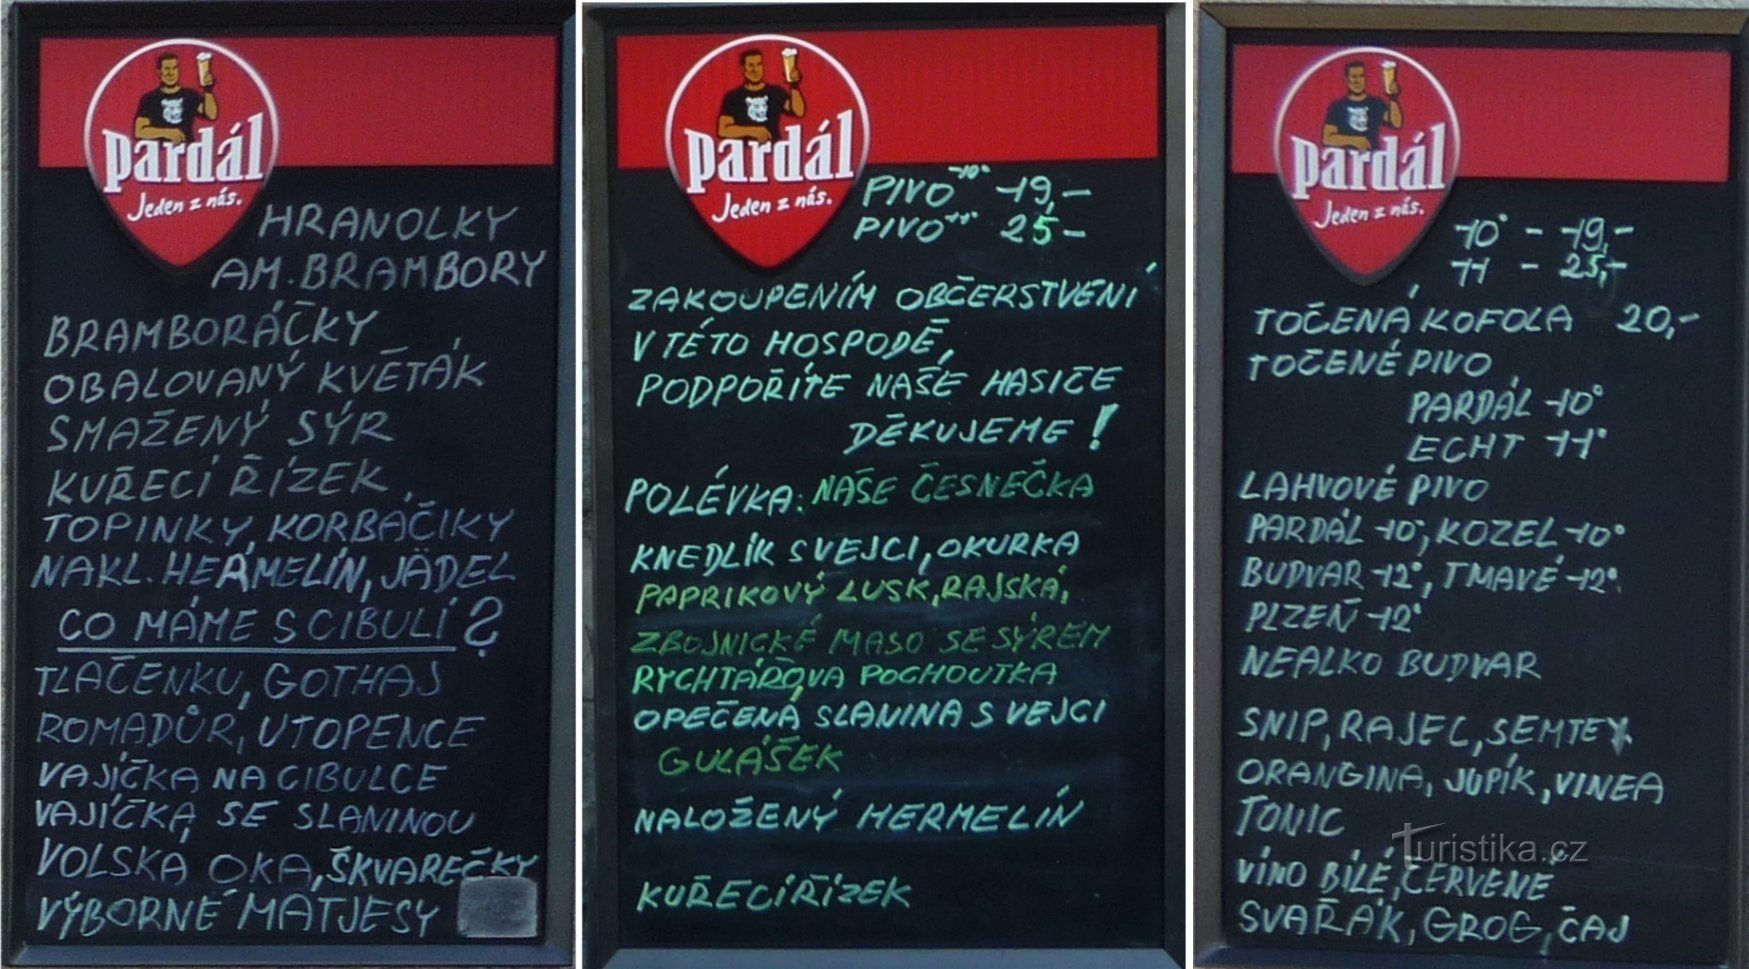 pardál
Jeden z nás.
HRANOLKY
AM. BRAMBORY
BRAMBORÁČKY
OBALOVANÝ KVĚTÁK
SMAŽENÝ SÝR
KUŘECÍ ŘÍZEK
TOPINKY, KORBÁČIKY
NAKL. HERMELÍN, JÄDEL
CO MÁME S CIBULÍ?
TLAČENKU, GOTHAJ
ROMADŮR, UTOPENCE
VAJÍČKA NA CIBULCE
VAJÍČKA SE SLANINOU
VOLSKÁ OKA, ŠKVAREČKY
VÝBORNÉ MATJESY
pardál
Jeden z nás.
PIVO 10° 19,-
PIVO 11° 25-
ZAKOUPENÍM OBČERSTVENÍ
V TÉTO HOSPODĚ,
PODPOŘÍTE NAŠE HASIČE
DĚKUJEME!
POLÉVKA: NAŠE ČESNEČKA
KNEDLÍK S VEJCI, OKURKA
PAPRIKOVÝ LUSK, RAJSKÁ,
ZBOJNICKÉ MASO SE SÝREM
RYCHTÁŘOVA POCHOUTKA
OPEČENÁ SLANINA S VEJCI
GULÁŠEK
NALOŽENÝ HERMELÍN
KUŘECÍ ŘÍZEK
pardál
Jeden z nás.
10° - 19,-
11 - 25,-
TOČENÁ KOFOLA 20,-
TOČENÉ PIVO
PARDÁL 10°
ECHT 11°
LAHVOVÉ PIVO
PARDÁL 10°, KOZEL 10°
BUDVAR 12°, TMAVÉ 12°
PLZEŇ 12°
NEALKO BUDVAR
SNIP, RAJEC, SEMTEX
ORANGINA, JUPÍK, VINEA
TONIC
VÍNO BÍLÉ, ČERVENÉ
SVAŘÁK, GROG, ČAJ
Turistika.cz